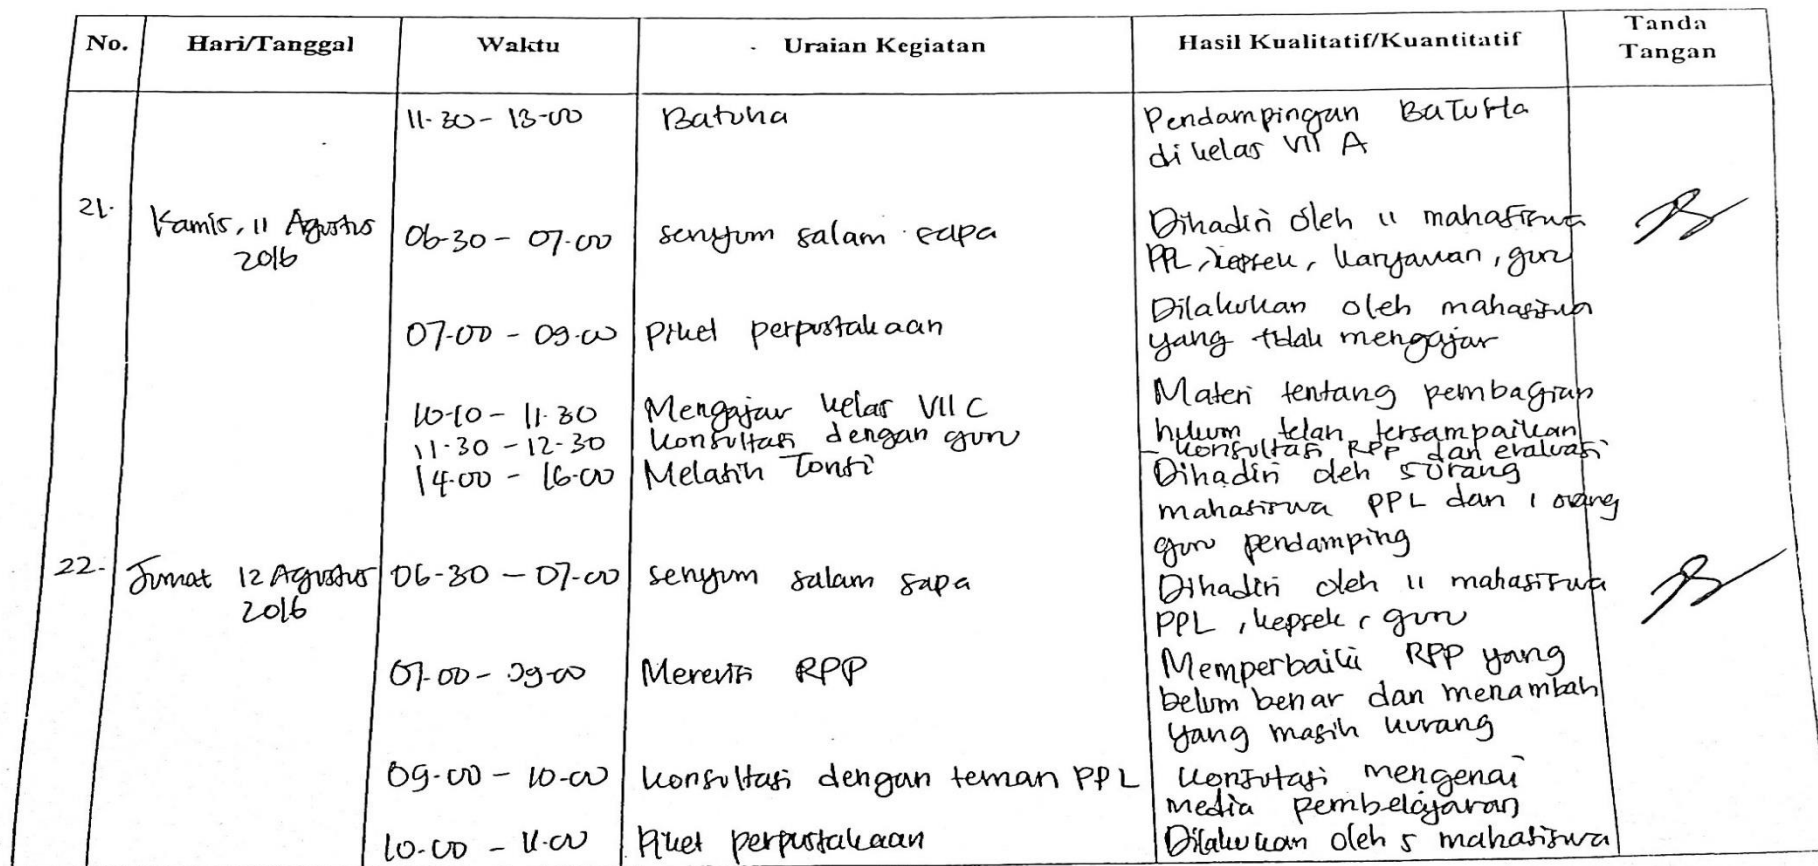 No. Hari/Tanggal Waktu Uraian Kegiatan Hasil Kualitatif/Kuantitatif Tanda
Tangan
11.30 - 13.00 Batuha Pendampingan BaTuHa
di kelas VII A
21. Kamis, 11 Agustus 06.30 - 07.00 senyum salam sapa Dihadiri oleh 11 mahasiswa
2016 PPL, kepsek, karyawan, guru
07.00 - 09.00 Piket perpustakaan Dilakukan oleh mahasiswa
yang tidak mengajar
10.10 - 11.30 Mengajar kelas VII C Materi tentang pembagian
hukum telah tersampaikan
11.30 - 12.30 konsultasi dengan guru - konsultasi RPP dan evaluasi
14.00 - 16.00 Melatih Tonti Dihadiri oleh 5 orang
mahasiswa PPL dan 1 orang
guru pendamping
22. Jumat 12 Agustus 06.30 - 07.00 senyum salam sapa Dihadiri oleh 11 mahasiswa
2016 PPL, kepsek, guru
07.00 - 09.00 Merevisi RPP Memperbaiki RPP yang
belum benar dan menambah
yang masih kurang
09.00 - 10.00 konsultasi dengan teman PPL konsutasi mengenai
media pembelajaran
10.00 - 11.00 Piket perpustakaan Dilakukan oleh 5 mahasiswa